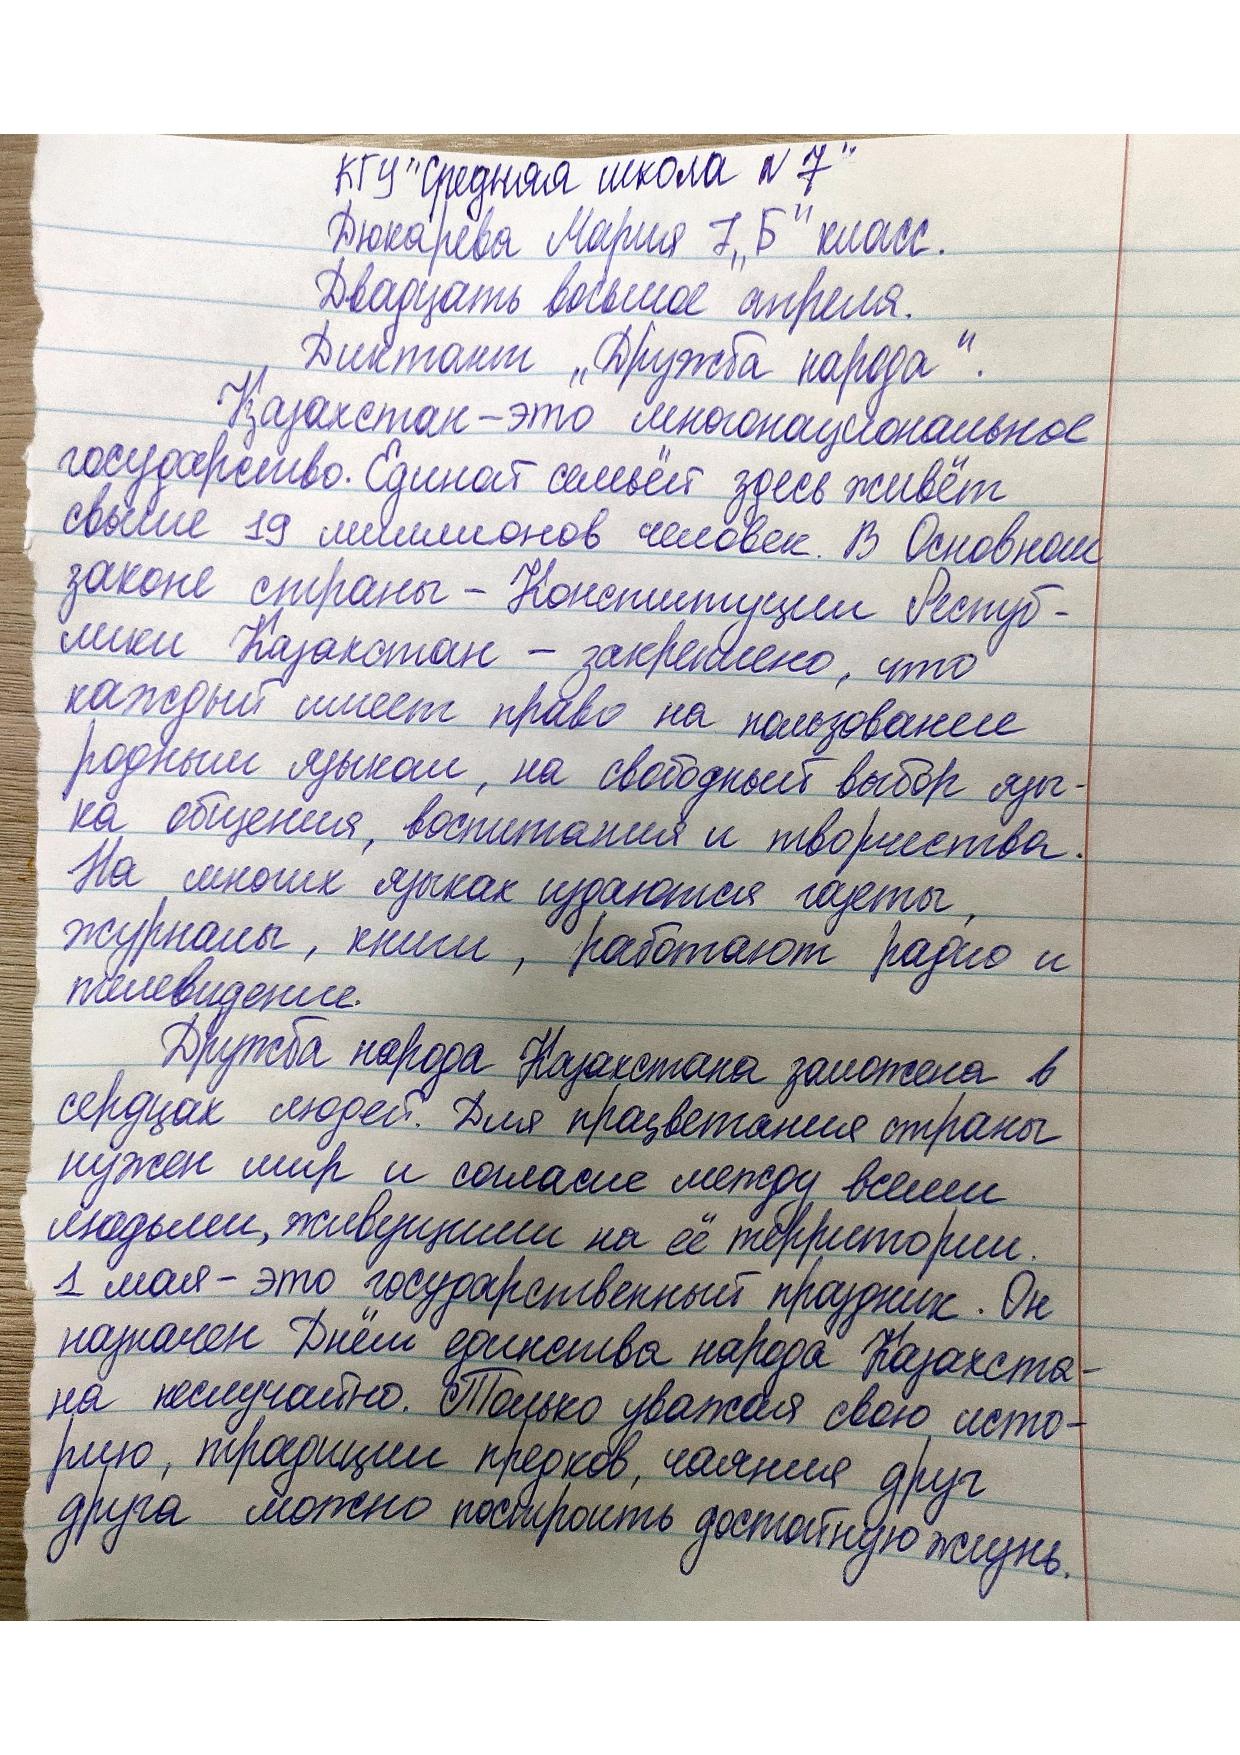 КГУ "Средняя школа N 7"
Дюкарева Мария 7 „Б" класс.
Двадцать восьмое апреля.
Диктант „Дружба народа".
Казахстан – это многонациональное
государство. Единой семьёй здесь живёт
свыше 19 миллионов человек. В Основном
законе страны – Конституции Респуб-
лики Казахстан – закреплено, что
каждый имеет право на пользование
родным языком, на свободный выбор язы-
ка общения, воспитания и творчества.
На многих языках издаются газеты,
журналы, книги, работают радио и
телевидение.
Дружба народа Казахстана заложена в
сердцах людей. Для працветания страны
нужен мир и согласие между всеми
людьми, живущими на её территории.
1 мая – это государственный праздник. Он
назначен Днём единства народа Казахста-
на неслучайно. Только уважая свою исто-
рию, традиции предков, чаяния друг
друга можно построить достойную жизнь.